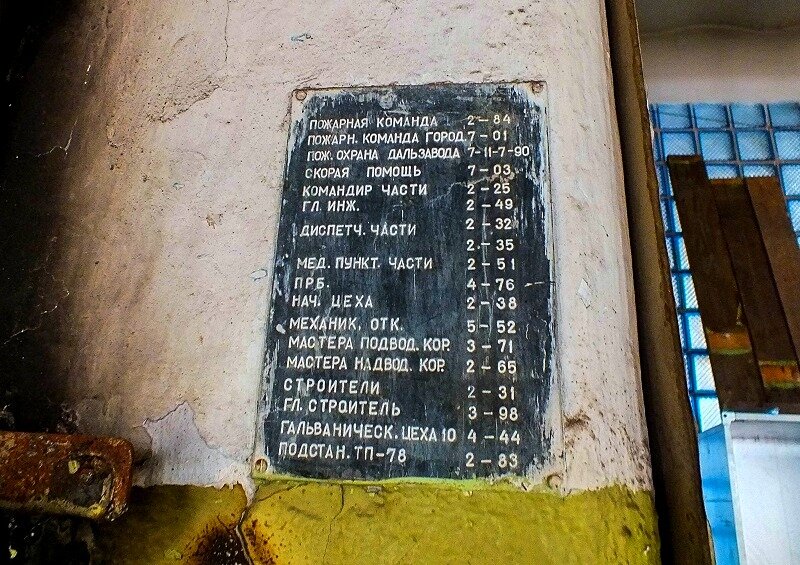 ПОЖАРНАЯ КОМАНДА 2-84
ПОЖАРН. КОМАНДА ГОРОД. 7-01
ПОЖ. ОХРАНА ДАЛЬЗАВОДА 7-11-7-90
СКОРАЯ ПОМОЩЬ 7-03
КОМАНДИР ЧАСТИ 2-25
ГЛ. ИНЖ. 2-49
ДИСПЕТЧ. ЧАСТИ 2-32
2-35
МЕД. ПУНКТ. ЧАСТИ 2-51
ПРБ. 4-76
НАЧ. ЦЕХА 2-38
МЕХАНИК. ОТК. 5-52
МАСТЕРА ПОДВОД. КОР. 3-71
МАСТЕРА НАДВОД. КОР. 2-65
СТРОИТЕЛИ 2-31
ГЛ. СТРОИТЕЛЬ 3-98
ГАЛЬВАНИЧЕСК. ЦЕХА 10 4-44
ПОДСТАН. ТП-78 2-83